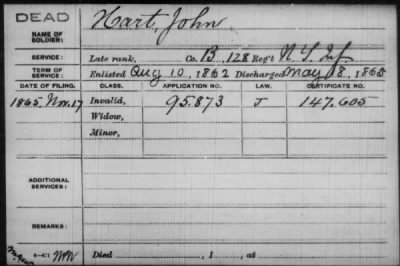 DEAD
Hart, John
NAME OF SOLDIER:
SERVICE: Late rank, Co. B, 128 Reg't N.Y. Inf
TERM OF SERVICE: Enlisted Aug 10, 1862 Discharged May 18, 1865
DATE OF FILING. CLASS. APPLICATION NO. LAW. CERTIFICATE NO.
1865, Nov. 17 Invalid, 95.873 J 147.605
Widow,
Minor,
ADDITIONAL SERVICES:
REMARKS:
Died , 1 , at